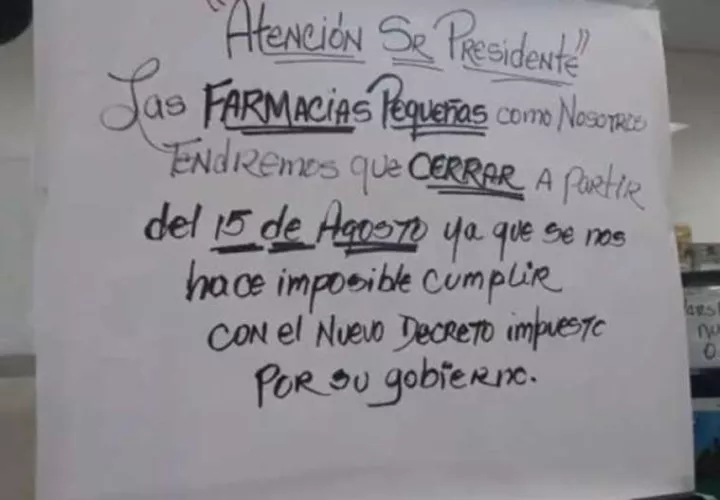 "Atención Sr Presidente"
Las Farmacias Pequeñas como Nosotros
Tendremos que Cerrar a partir
del 15 de Agosto ya que se nos
hace imposible cumplir
con el Nuevo Decreto impuesto
Por su gobierno.